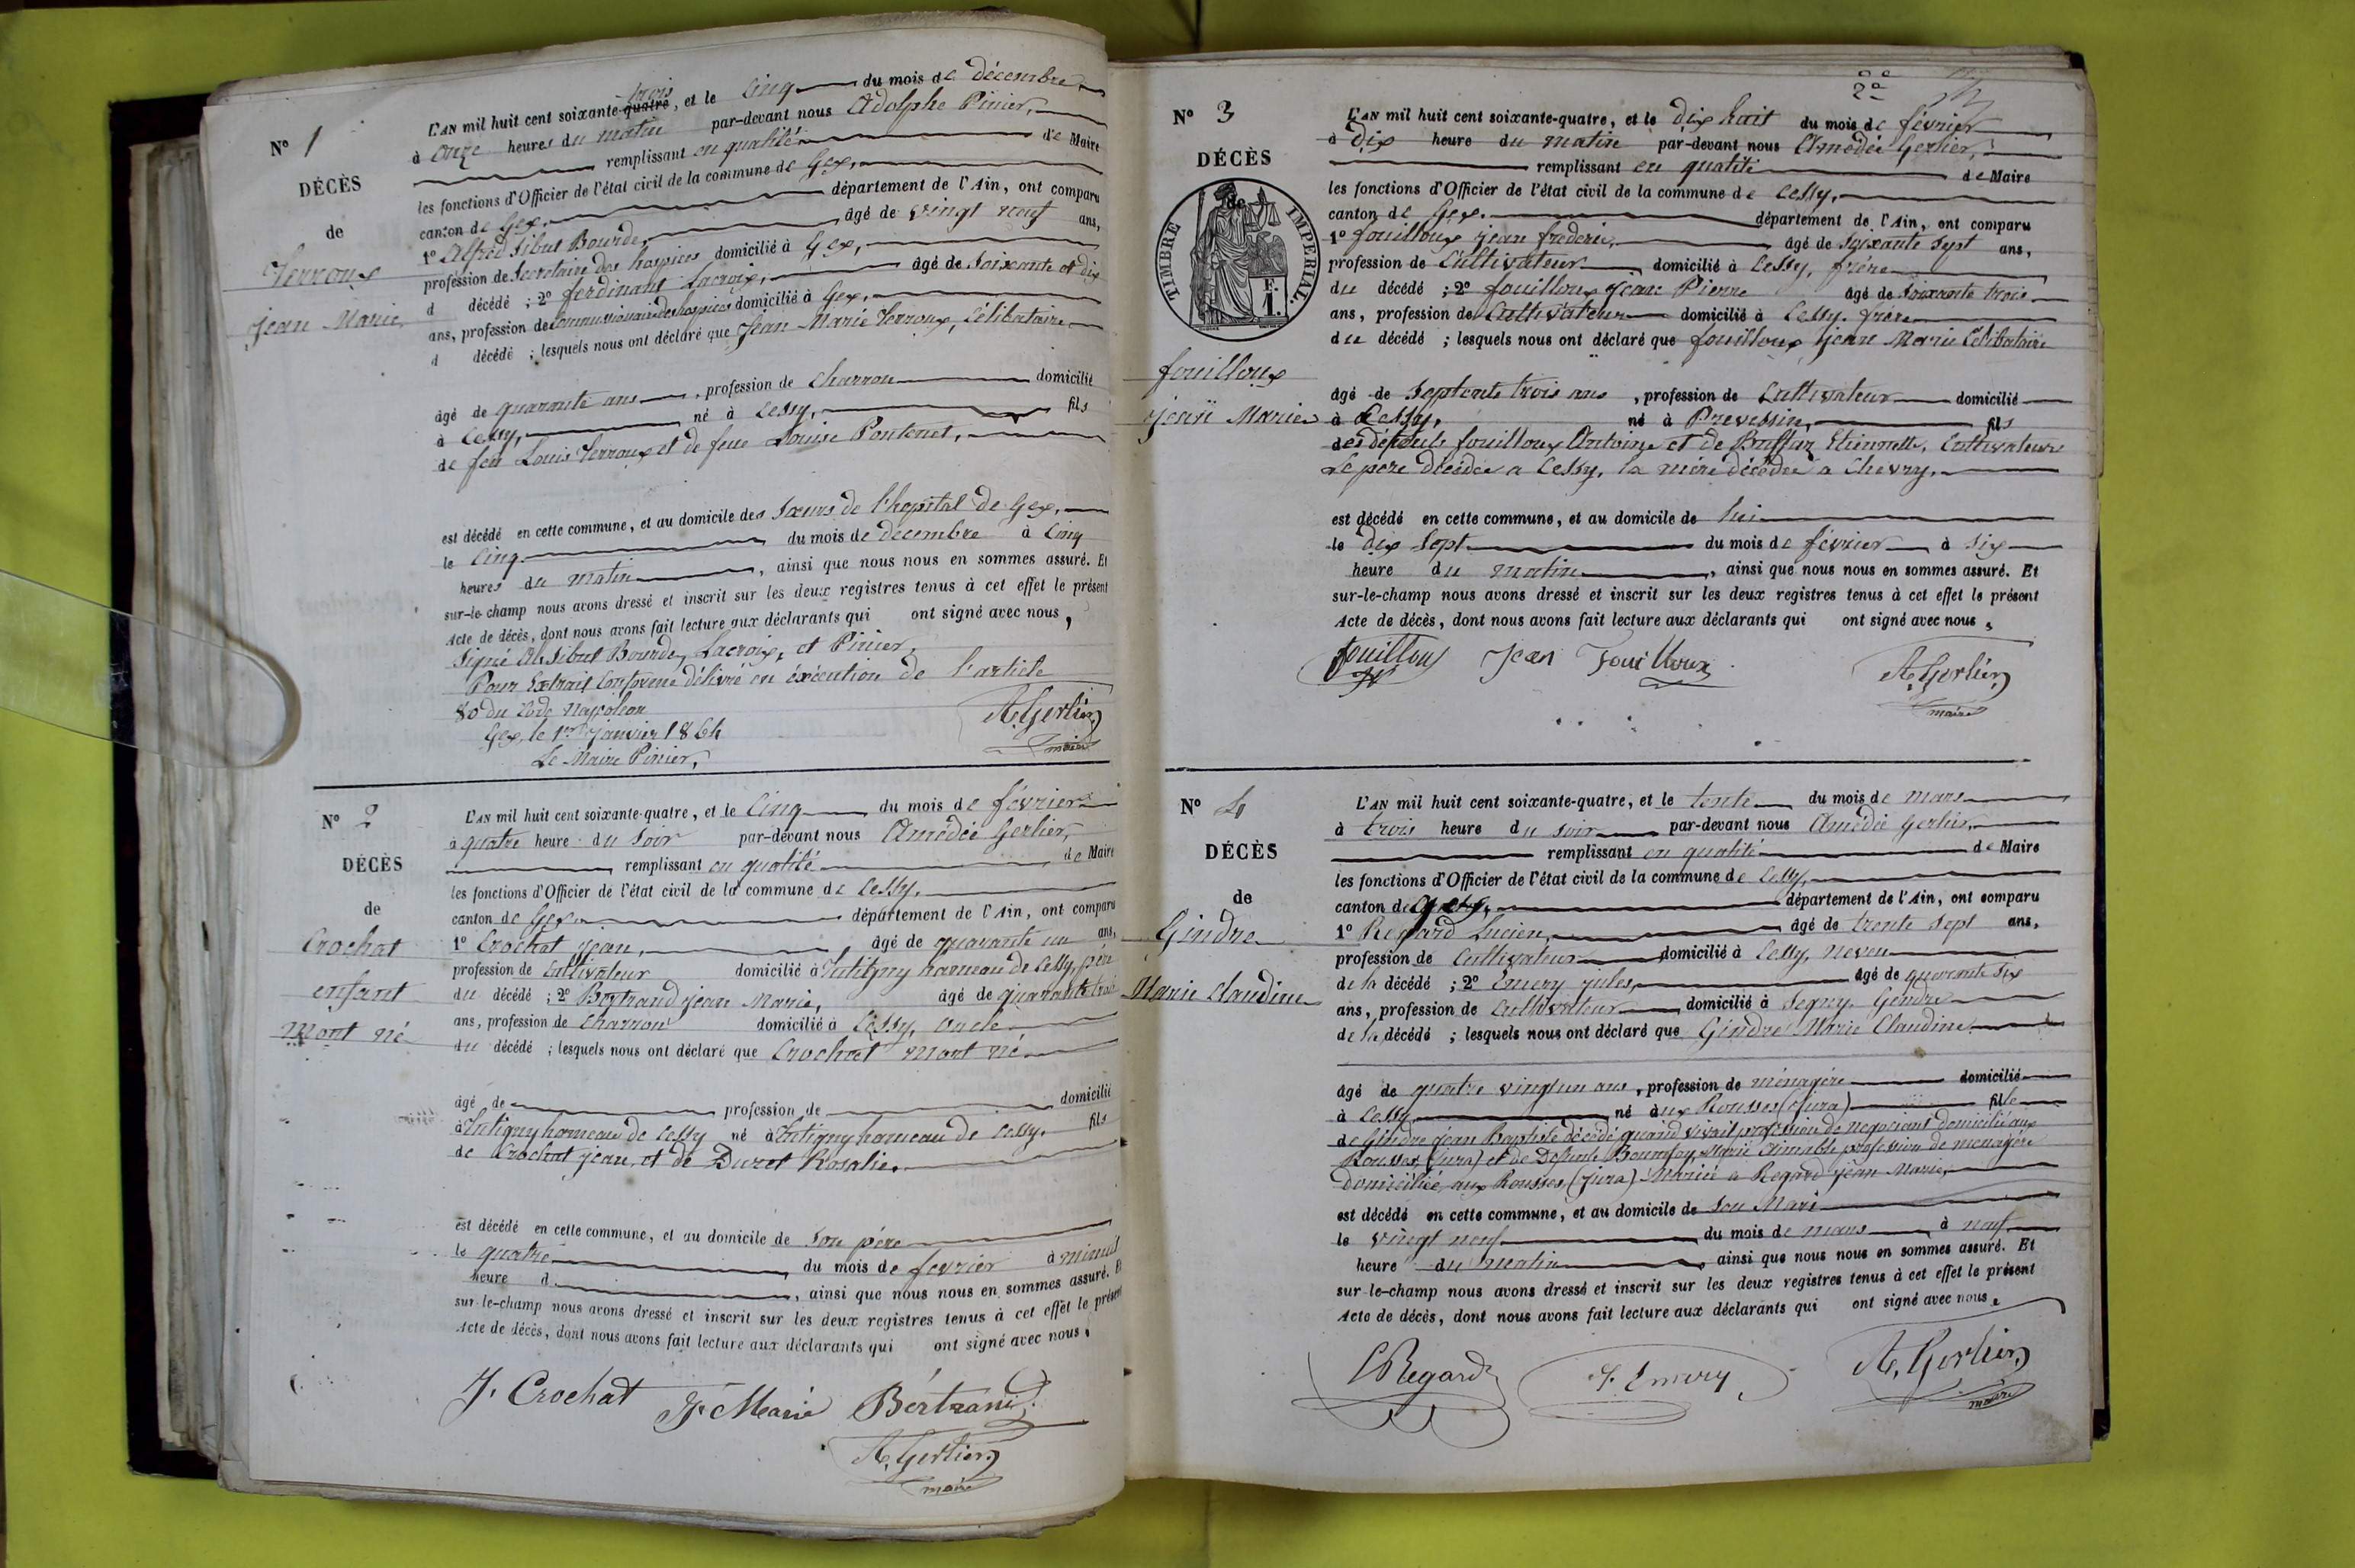 N° 1
DÉCÈS
de
Verroux
Jean Marie
trois
L'AN mil huit cent soixante-quatre, et le Cinq du mois de décembre
à Onze heures du matin par-devant nous Adolphe Pinier,
remplissant en qualité de Maire
les fonctions d'Officier de l'état civil de la commune de Gex,
canton de Gex, département de l'Ain, ont comparu
1° Alfred Sibut Bourde, âgé de vingt neuf ans,
profession de Secrétaire des hospices domicilié à Gex,
d décédé ; 2° ferdinand Lacroix, âgé de Soixante et dix
ans, profession de Commissionnaire des hospices domicilié à Gex,
d décédé ; lesquels nous ont déclaré que Jean Marie Verroux, Célibataire
âgé de quarante ans, profession de Charron domicilié
à Cessy, né à Cessy, fils
de feu Louis Verroux et de feue Louise Pontenet,
est décédé en cette commune, et au domicile des Sœurs de l'hopital de Gex,
le Cinq du mois de décembre à Cinq
heures du matin, ainsi que nous nous en sommes assuré. Et
sur-le-champ nous avons dressé et inscrit sur les deux registres tenus à cet effet le présent
Acte de décès, dont nous avons fait lecture aux déclarants qui ont signé avec nous,
Signé Al. Sibut Bourde, Lacroix, et Pinier,
Pour Extrait Conforme délivré en éxécution de l'article
80 du Code Napoléon
Gex, le 1er Janvier 1864
Le Maire Pinier,
A. Gerlier
maire
N° 2
DÉCÈS
de
Crochat
enfant
mort né
L'AN mil huit cent soixante-quatre, et le Cinq du mois de février
à quatre heure du Soir par-devant nous Amédée Gerlier,
remplissant en qualité de Maire
les fonctions d'Officier de l'état civil de la commune de Cessy,
canton de Gex département de l'Ain, ont comparu
1° Crochat jean, âgé de quarante un ans,
profession de Cultivateur domicilié à Tutigny hameau de Cessy, père
du décédé ; 2° Bertrand jean Marie, âgé de quarante trois
ans, profession de Charron domicilié à Cessy, oncle
du décédé ; lesquels nous ont déclaré que Crochat mort né
âgé de profession de domicilié
à Tutigny hameau de Cessy né à Tutigny hameau de Cessy. fils
de Crochat jean, et de Duret Rosalie.
est décédé en cette commune, et au domicile de Son père
le quatre du mois de fevrier à minuit
heure d, ainsi que nous nous en sommes assuré. Et
sur-le-champ nous avons dressé et inscrit sur les deux registres tenus à cet effet le présent
Acte de décès, dont nous avons fait lecture aux déclarants qui ont signé avec nous.
J. Crochat J. Marie Bertrand
A. Gerlier
maire
2e
N° 3
DÉCÈS
de
TIMBRE IMPERIAL
F.
1.
fouilloux
jean Marie
L'AN mil huit cent soixante-quatre, et le dix huit du mois de février
à dix heure du matin par-devant nous Amédée Gerlier,
remplissant en qualité de Maire
les fonctions d'Officier de l'état civil de la commune de Cessy,
canton de Gex. département de l'Ain, ont comparu
1° fouilloux jean frederic, âgé de Soixante Sept ans,
profession de Cultivateur domicilié à Cessy, frére
du décédé ; 2° fouilloux jean Pierre âgé de Soixante trois
ans, profession de Cultivateur domicilié à Cessy. frére
du décédé ; lesquels nous ont déclaré que fouilloux jean Marie Célibataire
âgé de Septente trois ans, profession de Cultivateur domicilié
à Cessy, né à Prevessin, fils
des défunts fouilloux Antoine et de Etiennette, Cultivateurs
Le pere décédée a Cessy, la mère décédée a Chevry,
est décédé en cette commune, et au domicile de lui
le dix Sept du mois de février à Six
heure du matin, ainsi que nous nous en sommes assuré. Et
sur-le-champ nous avons dressé et inscrit sur les deux registres tenus à cet effet le présent
Acte de décès, dont nous avons fait lecture aux déclarants qui ont signé avec nous,
fouilloux Jean Fouilloux A. Gerlier
maire
N° 4
DÉCÈS
de
Gindre
Marie Claudine
L'AN mil huit cent soixante-quatre, et le trente du mois de mars
à trois heure du soir par-devant nous Amédée Gerlier,
remplissant en qualité de Maire
les fonctions d'Officier de l'état civil de la commune de Cessy,
canton de Gex, département de l'Ain, ont comparu
1° Regard Lucien, âgé de trente Sept ans,
profession de Cultivateur domicilié à Cessy, neveu
de la décédé ; 2° Emery jules, âgé de quarante Six
ans, profession de Cultivateur domicilié à Segny. Gendre
de la décédé ; lesquels nous ont déclaré que Gindre Marie Claudine
âgé de quatre vingt un ans, profession de ménagère domicilié
à Cessy né aux Rousses (Jura) fille
de Gindre jean Baptiste décédé quand vivait profession de negociant domicilié aux
Rousses, (jura) et de Defunte Marie Aimable profession de menagère
domiciliée aux Rousses (Jura) Mariée a Regard jean Marie,
est décédé en cette commune, et au domicile de Son Mari
le vingt neuf du mois de mars à neuf
heure du matin, ainsi que nous nous en sommes assuré. Et
sur-le-champ nous avons dressé et inscrit sur les deux registres tenus à cet effet le présent
Acte de décès, dont nous avons fait lecture aux déclarants qui ont signé avec nous.
L Regard J. Emery A. Gerlier
maire